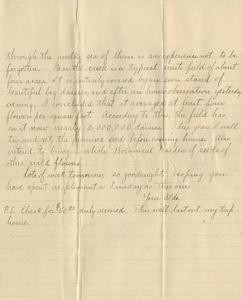 through the whole sea of them is an experience not to be
forgotten. Near the creek is a typical waste field of about
four acres. It is entirely covered by an even stand of
beautiful big daisies, and after an hours observation yesterday
evening, I concluded that it averaged at least four
flowers per square foot. According to this, the field has
on it now nearly 2,000,000 daisies. This year I will
try and get the promised seed before coming home. Also
intend to bring a whole Botanical Garden of seeds of
other wild flowers.
Lots of work tomorrow, so goodnight. Hoping you
have spent as pleasant a Sunday as this one.
Your Aldo
P.S. Check for $50.00 duly received. This will last out my trip
home.